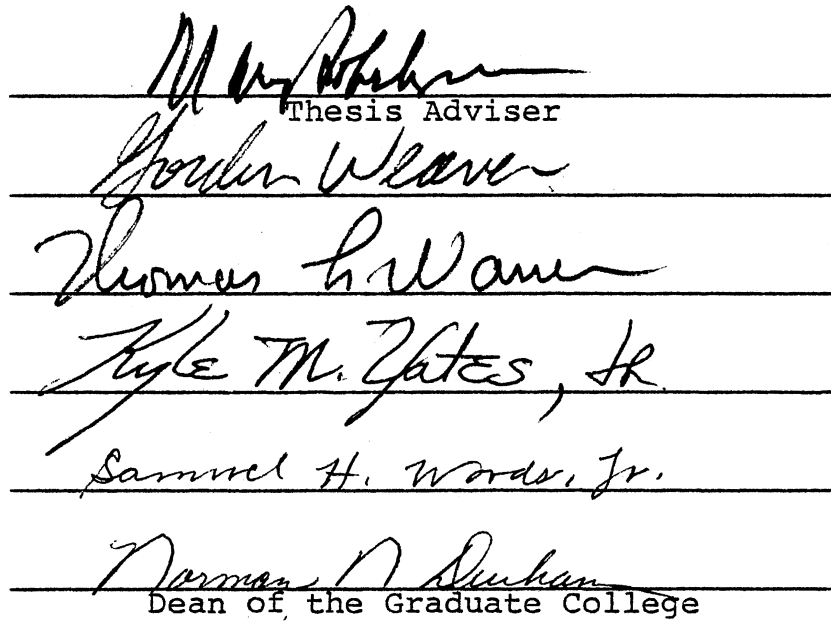 Mary Rohrberger
Thesis Adviser
Gordon Weaver
Thomas L. Warren
Kyle M. Yates, Jr.
Samuel H. Woods, Jr.
Norman N Durham
Dean of the Graduate College